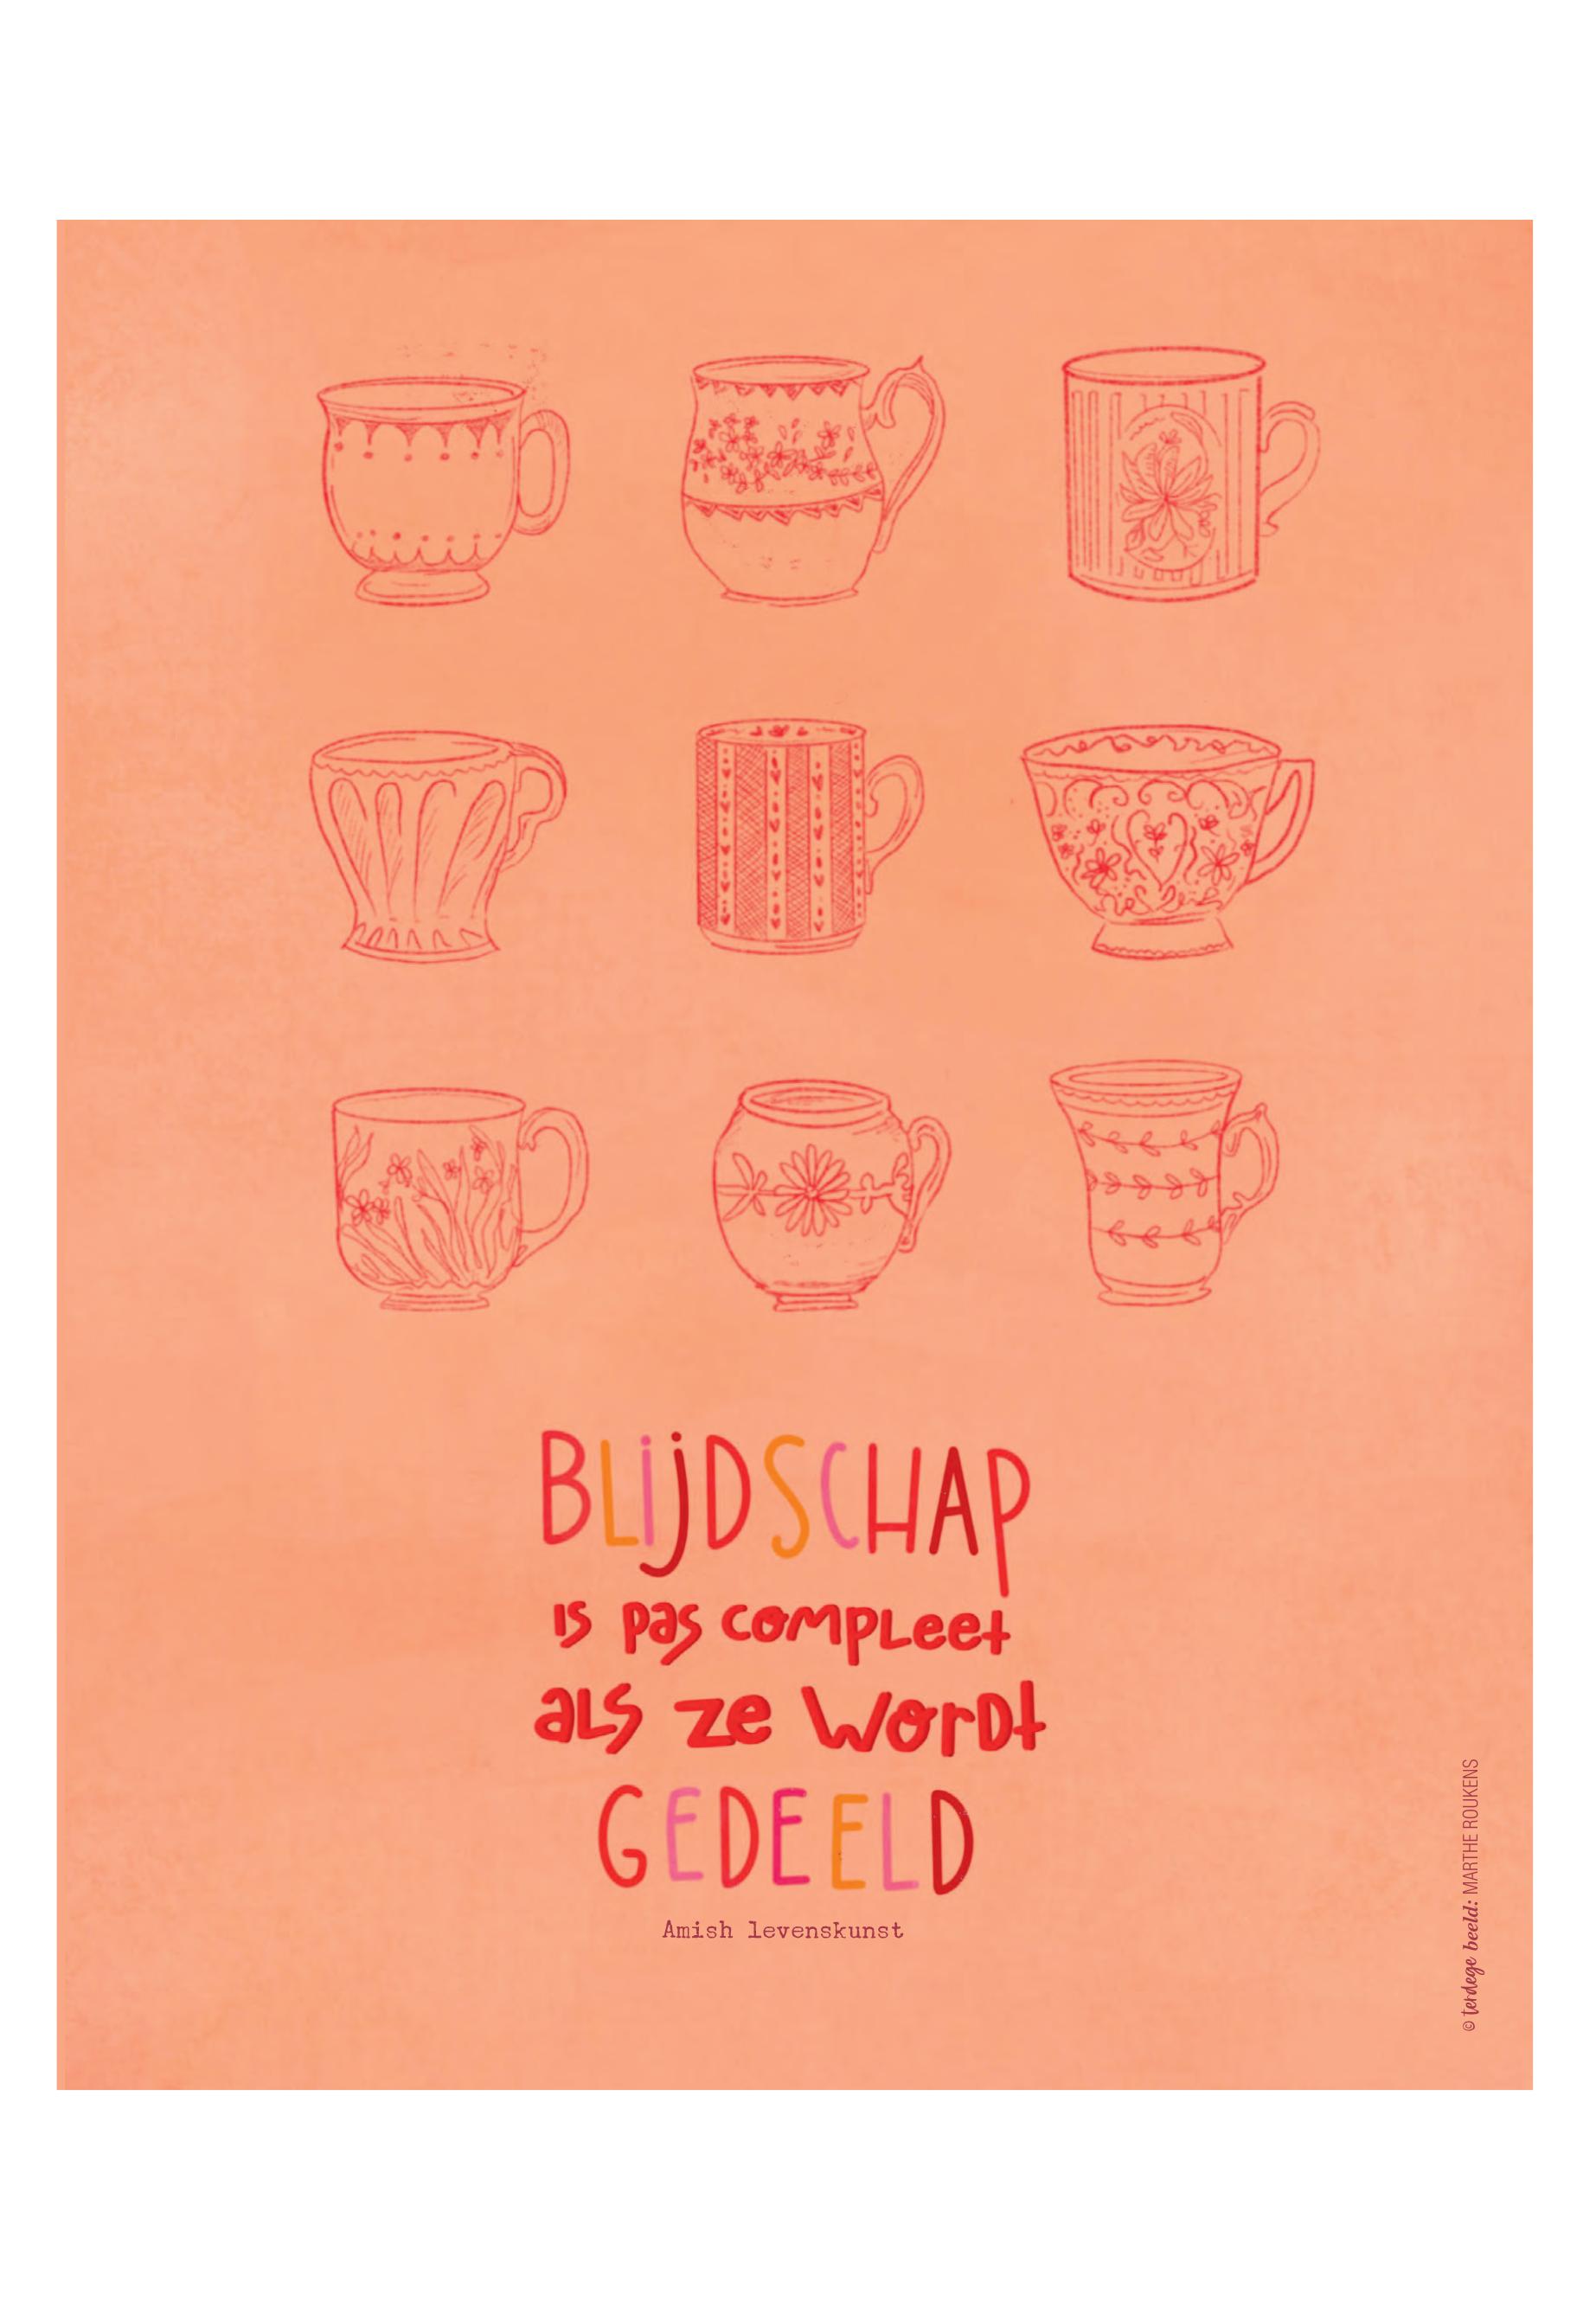 BLIJDSCHAP
is pas compleet
als ze wordt
GEDEELD
Amish levenskunst
© terdege beeld: MARTHE ROUKENS